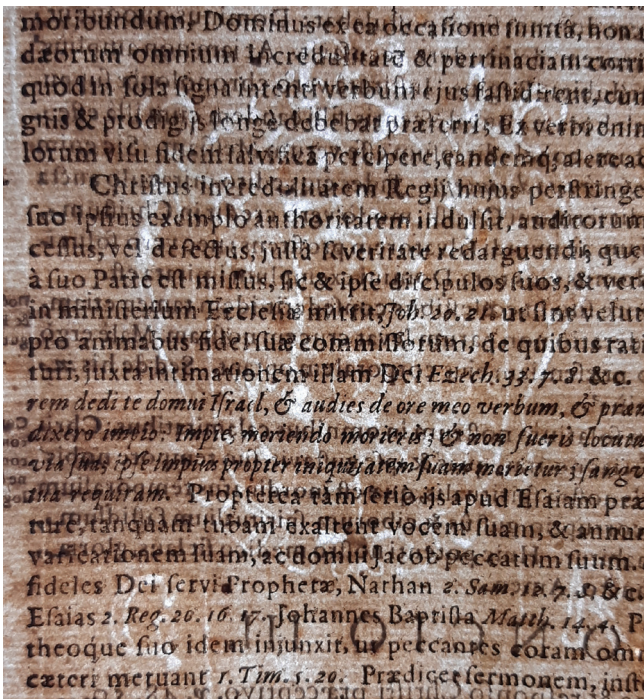 moribundum, Dominus ex ea occasione sumtâ, hon
dæorum omnium incredulitatē & pertinaciam corri
quòd in sola signa intenti verbum ejus fastidirent, cum
gnis & prodigijs longè debebat præferri; Ex verbi enim
lorum visu fidem salvificā percipere, eandemq; alere ac
Christus incredulitatem Regii hujus perstringe
suo ipsius exemplo authoritatem indulsit, auditorum
cessus, vel defectus, justâ severitate redarguendi; que
à suo Patre est missus, sic & ipse discipulos suos, & ver
in ministerium Ecclesiæ mittit, Joh. 20. 21. ut sint velut
pro animabus fidei suæ commissorum, de quibus rati
turi, juxta intimationem illam Dei Ezech. 33. 7. 8. & c.
rem dedi te domui Israel, & audies de ore meo verbum, & præn
dixero impio: Impie, moriendo morieris; & non fueris locutu
via sua; ipse impius propter iniquitatem suam morietur; sangv
tua requiram. Propterea tam seriò ijs apud Esaiam præ
ture, tanquam tubam exaltent vocem suam, & annun
varicationem suam, ac domui Jacob peccatum suum.
fideles Dei servi Prophetæ, Nathan 2. Sam. 12. 7. 8. & c.
Esaias 2. Reg. 20. 16. 17. Johannes Baptista Matth. 14. 4. P
theoque suo idem injunxit, ut peccantes coram omn
cæteri metuant 1. Tim. 5. 20. Prædices sermonem, inst